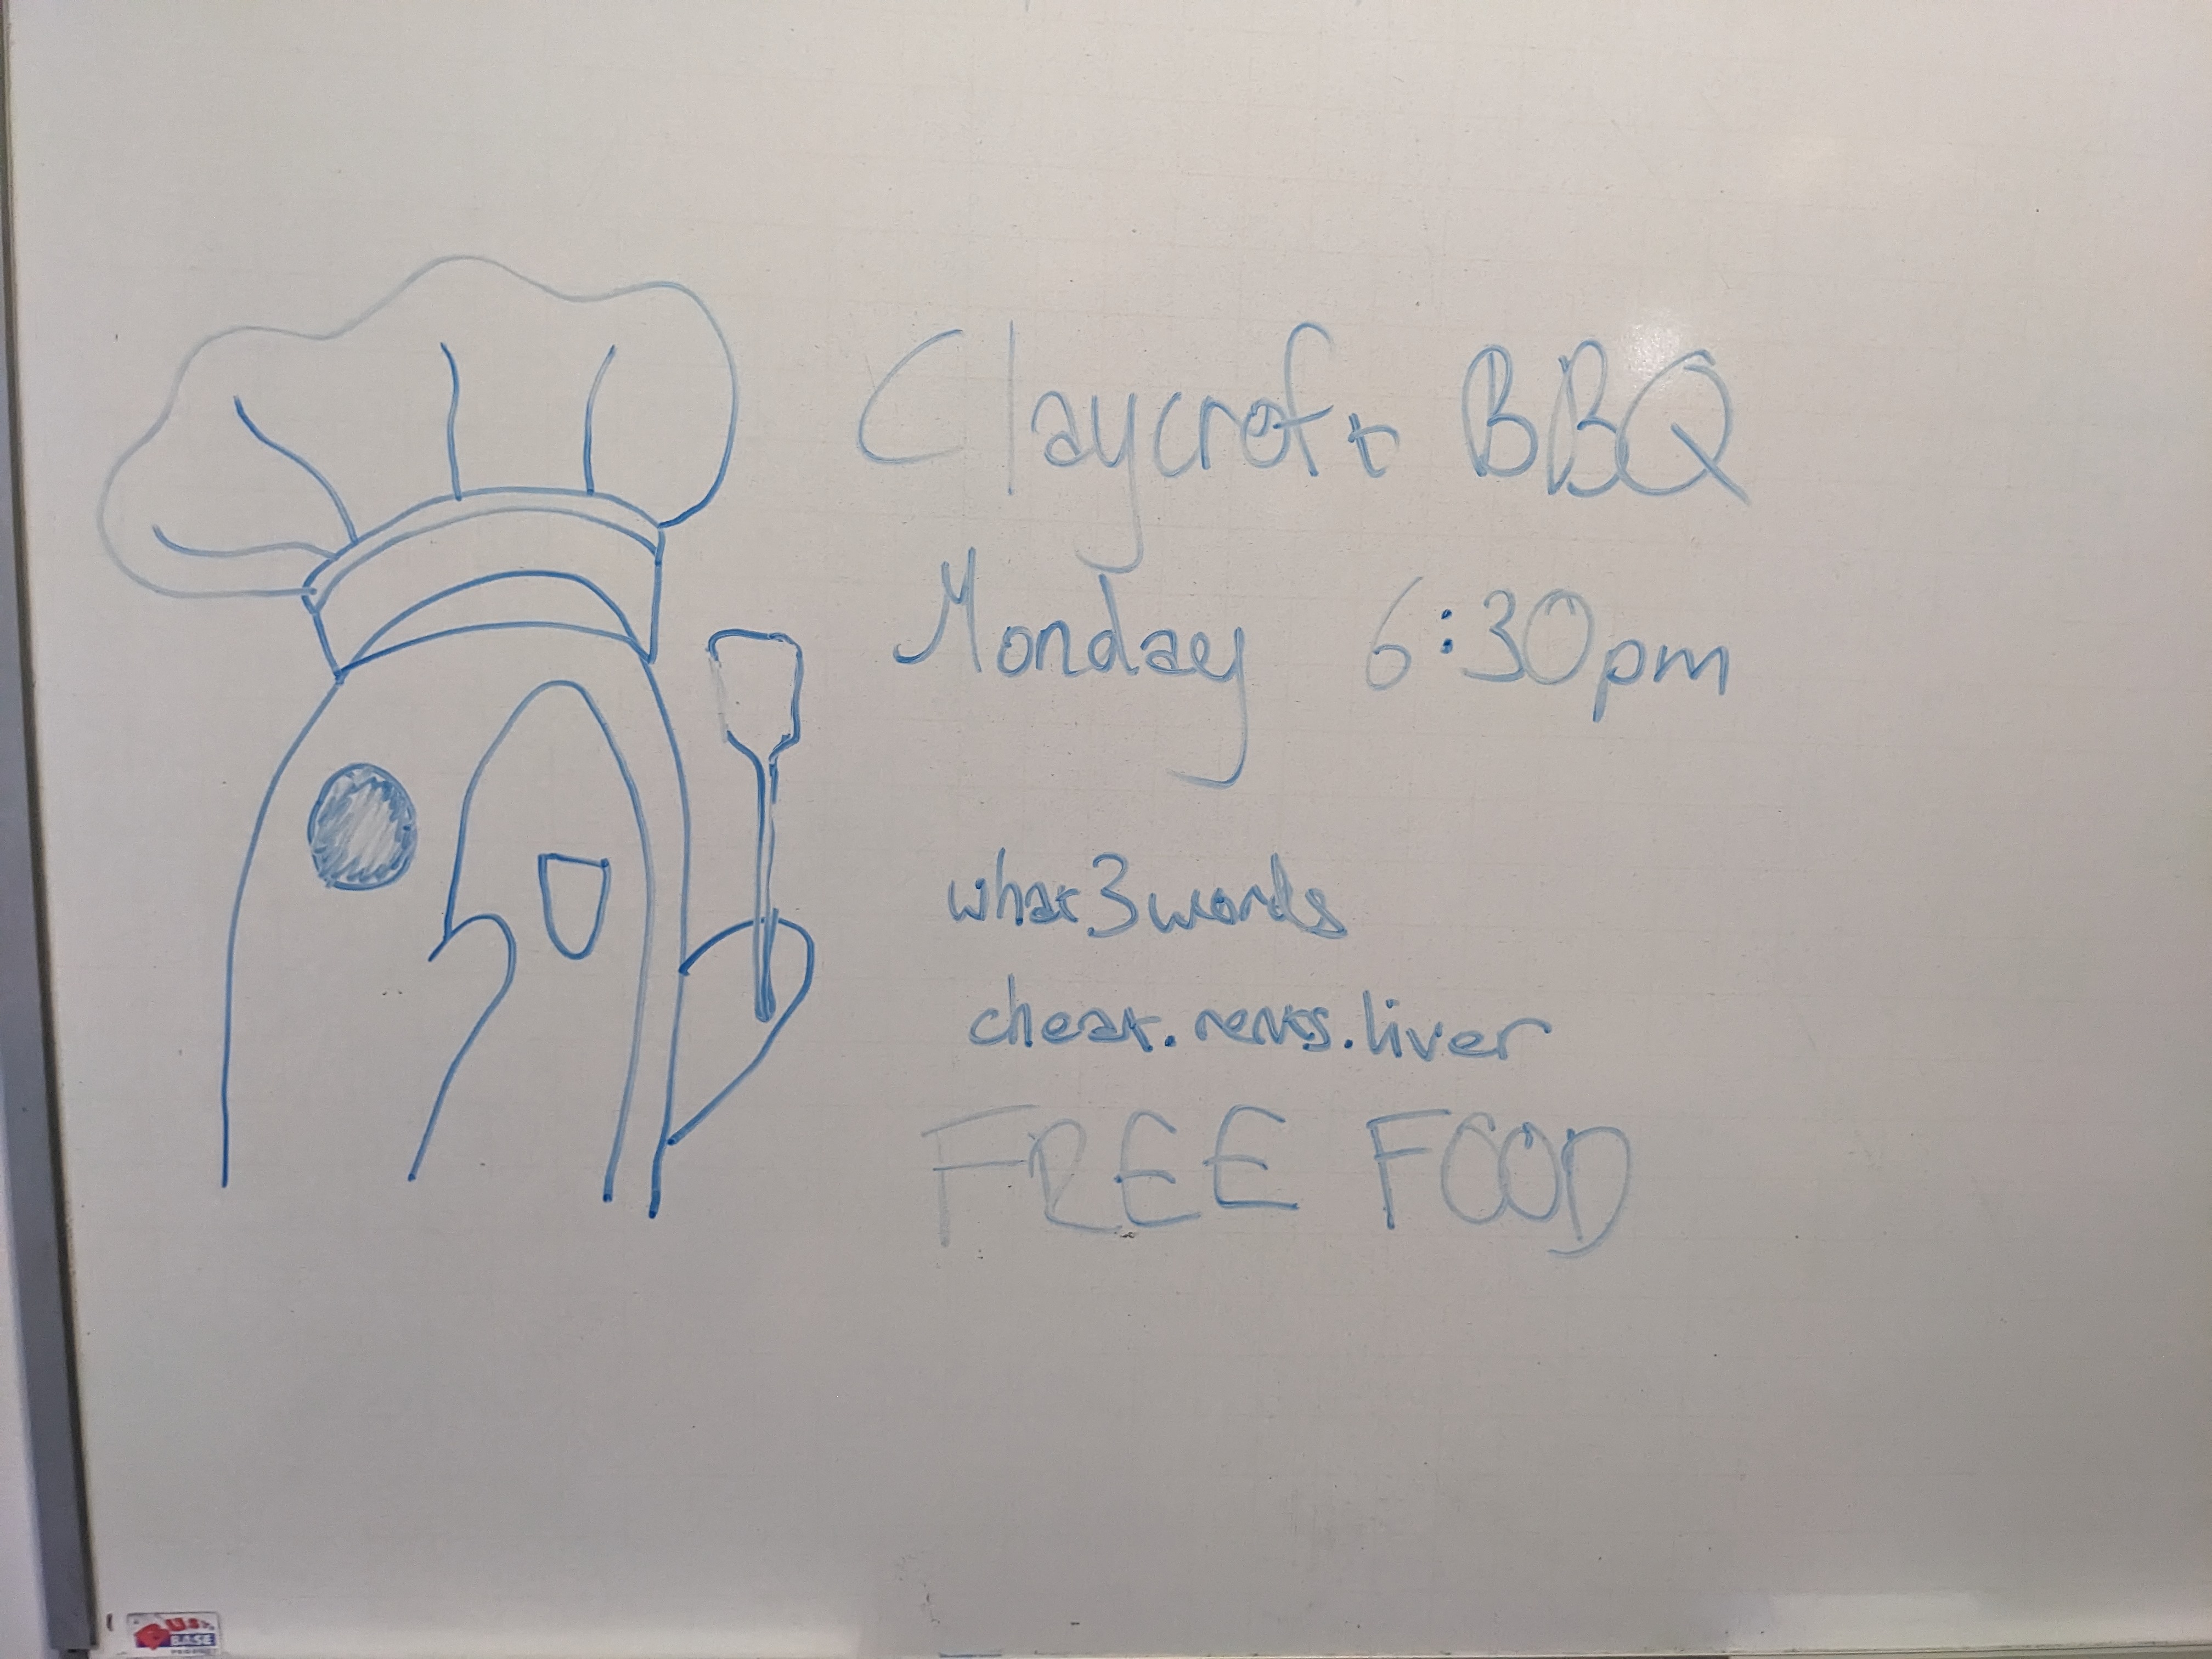 Claycroft BBQ
Monday 6:30pm
what3words
cheat.rents.liver
FREE FOOD
BASE